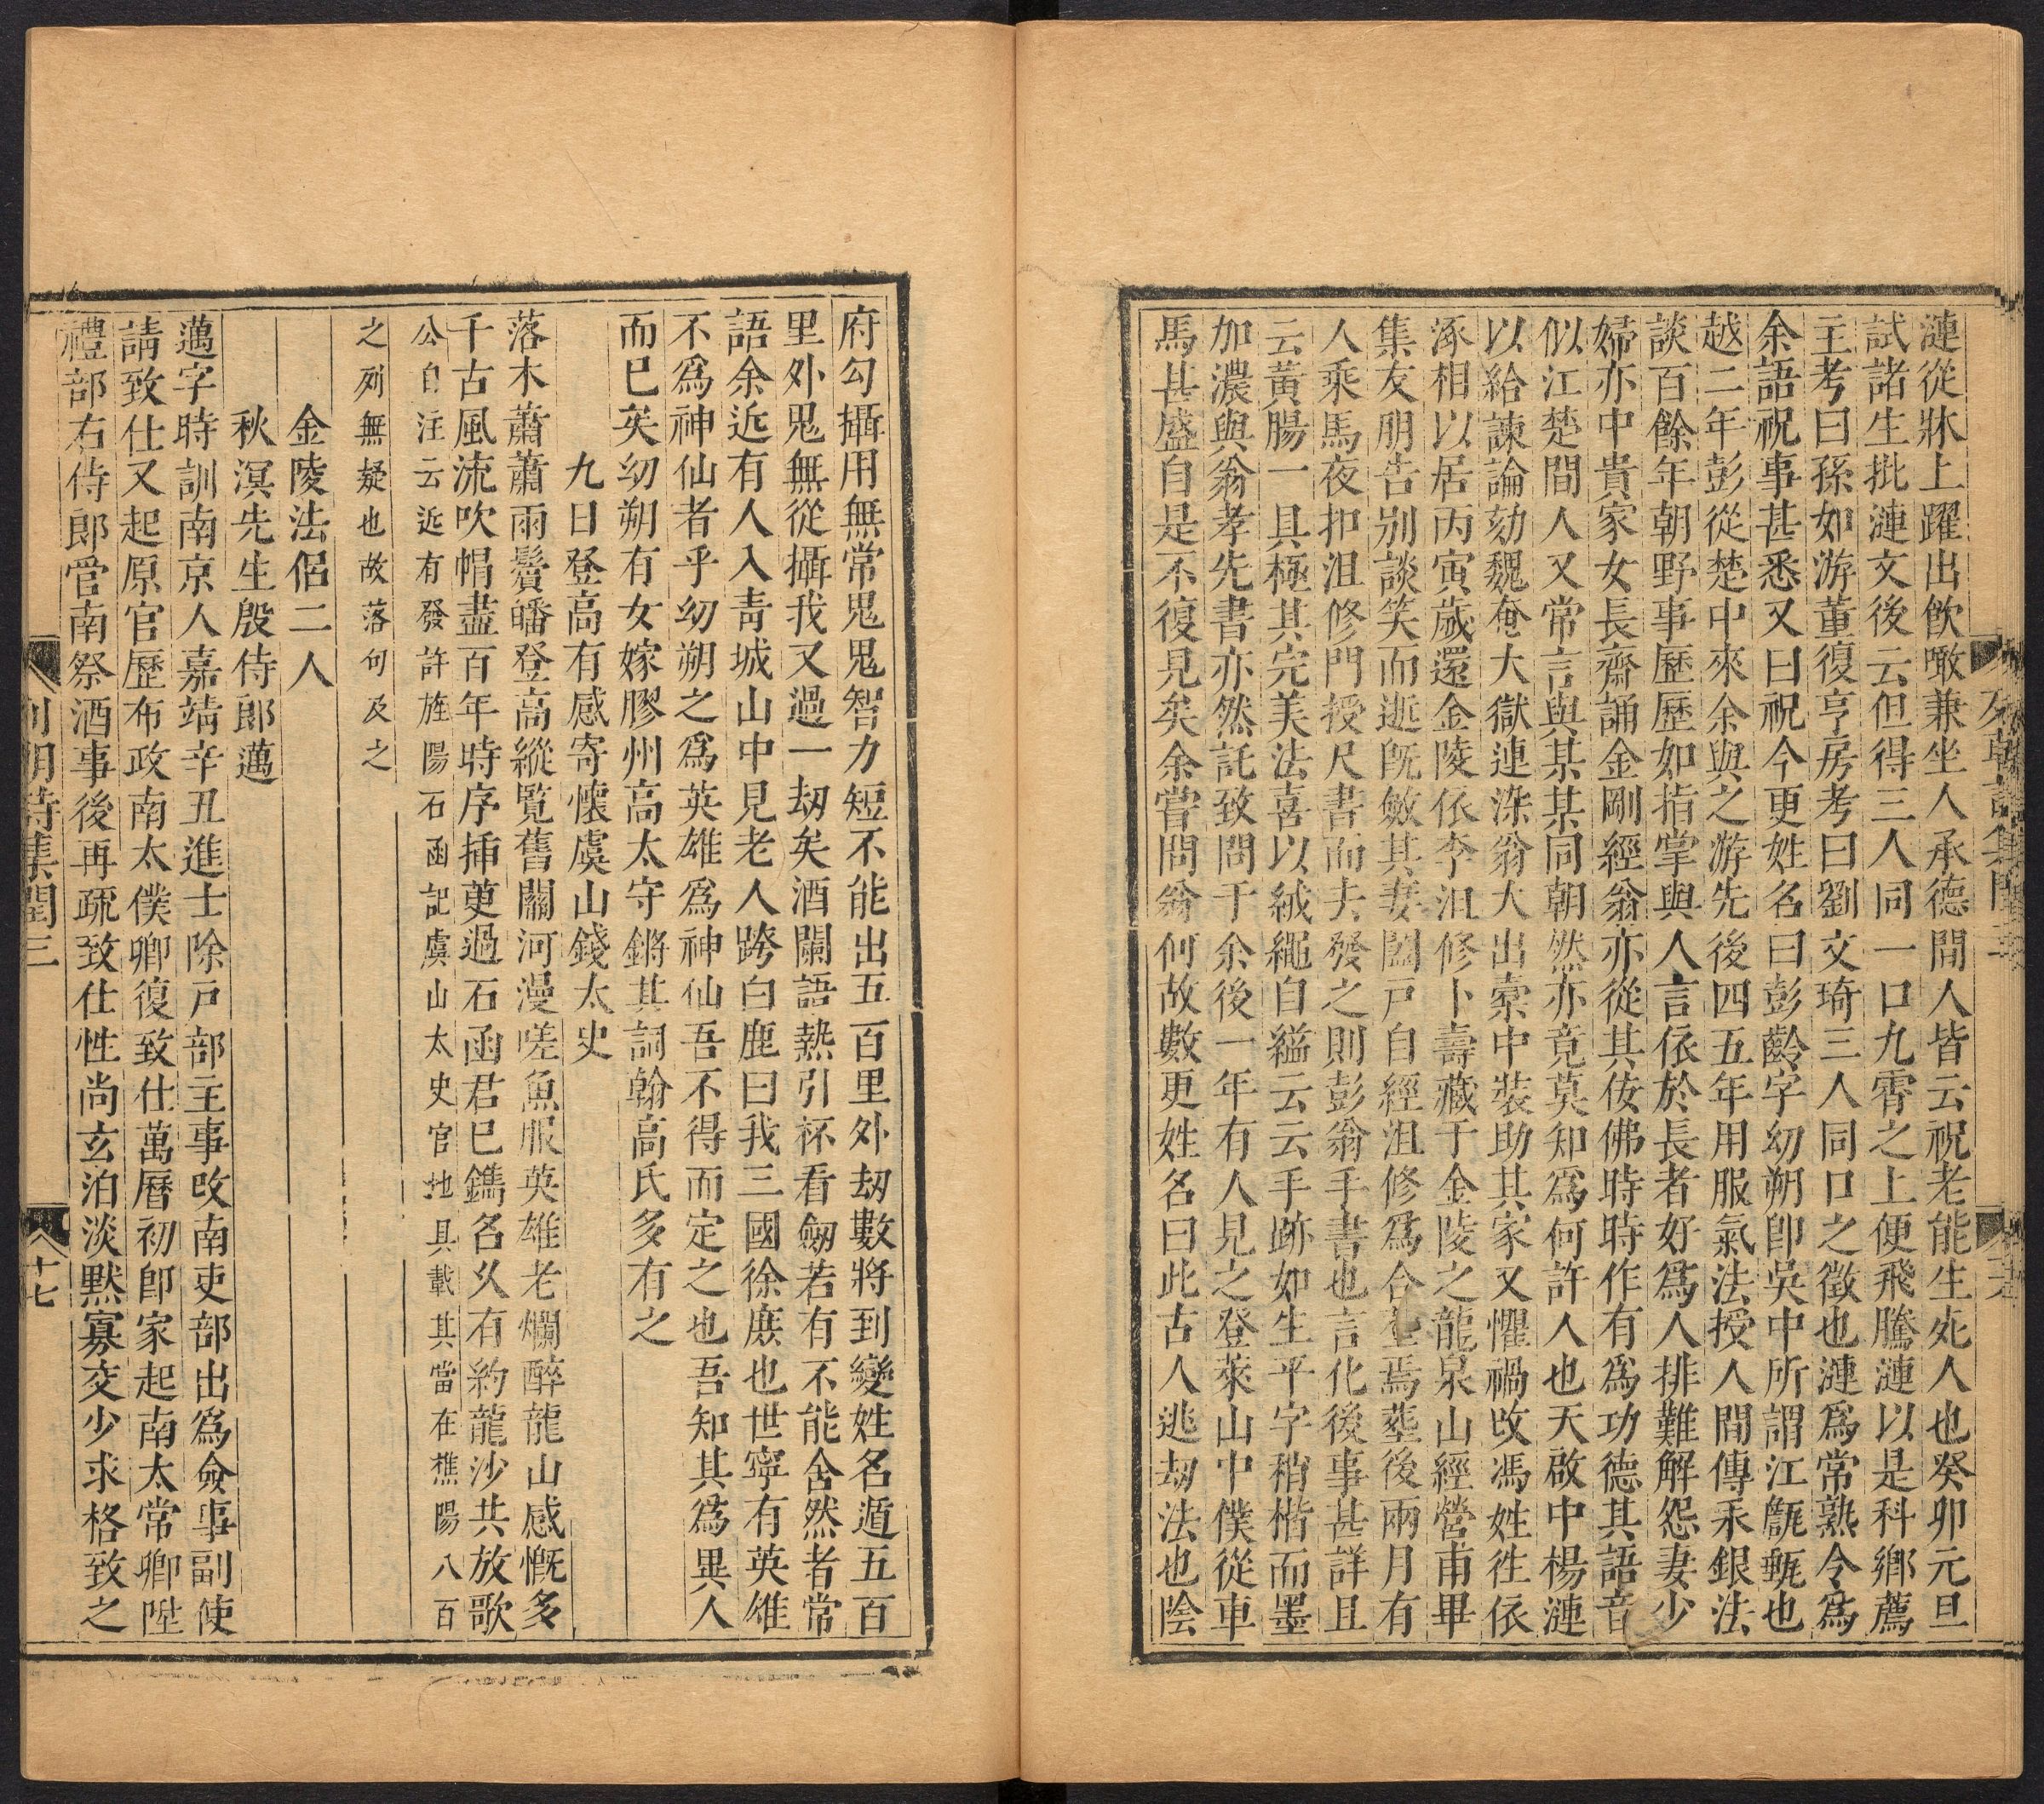 漣從牀上躍出飲噉兼坐人承德間人皆云祝老能生死人也癸卯元旦
試諸生批漣文後云但得三人同一口九霄之上便飛騰漣以是科鄉薦
主考曰孫如游董復亨房考曰劉文琦三人同口之徵也漣爲常熟令爲
余語祝事甚悉又曰祝今更姓名曰彭齡字幼朔卽吳中所謂江甎甎也
越二年彭從楚中來余與之游先後四五年用服氣法授人間傳汞銀法
談百餘年朝野事歷歷如指掌與人言依於長者好爲人排難解怨妻少
婦亦中貴家女長齋誦金剛經翁亦從其侫佛時時作有爲功德其語音
似江楚間人又常言與某某同朝然亦竟莫知爲何許人也天啟中楊漣
以給諫論劾魏奄大獄連染翁大出槖中裝助其家又懼禍改馮姓往依
涿相以居丙寅歲還金陵依李沮修卜壽藏于金陵之龍泉山經營甫畢
集友朋告別談笑而逝旣斂其妻闔戸自經沮修爲合葬焉塟後兩月有
人乘馬夜扣沮修門授尺書而去發之則彭翁手書也言化後事甚詳且
云黃腸一具極其完美法喜以絨繩自縊云云手跡如生平字稍楷而墨
加濃與翁孝先書亦然託致問于余後一年有人見之登萊山中僕從車
馬甚盛自是不復見矣余嘗問翁何故數更姓名曰此古人逃劫法也陰
府勾攝用無常鬼鬼智力短不能出五百里外劫數將到變姓名遁五百
里外鬼無從攝我又過一劫矣酒闌語熱引杯看劒若有不能舍然者常
語余近有人入靑城山中見老人跨白鹿曰我三國徐庶也世寧有英雄
不爲神仙者乎幼朔之爲英雄爲神仙吾不得而定之也吾知其爲異人
而已矣幼朔有女嫁膠州高太守鏘其詞翰高氏多有之
九日登高有感寄懷虞山錢太史
落木蕭蕭雨鬢皤登高縱覽舊關河漫嗟魚服英雄老爛醉龍山感慨多
千古風流吹帽盡百年時序揷萸過石函君已鐫名久有約龍沙共放歌
公自注云近有發許旌陽石函記虞山太史官地具載其當在樵陽八百
之列無疑也故落句及之
金陵法侶二人
秋溟先生殷侍郎邁
邁字時訓南京人嘉靖辛丑進士除戸部主事改南吏部出爲僉事副使
請致仕又起原官歷布政南太僕卿復致仕萬曆初卽家起南太常卿陞
禮部右侍郎管南祭酒事後再疏致仕性尚玄泊淡默寡交少求格致之
列朝詩集閏三
十七